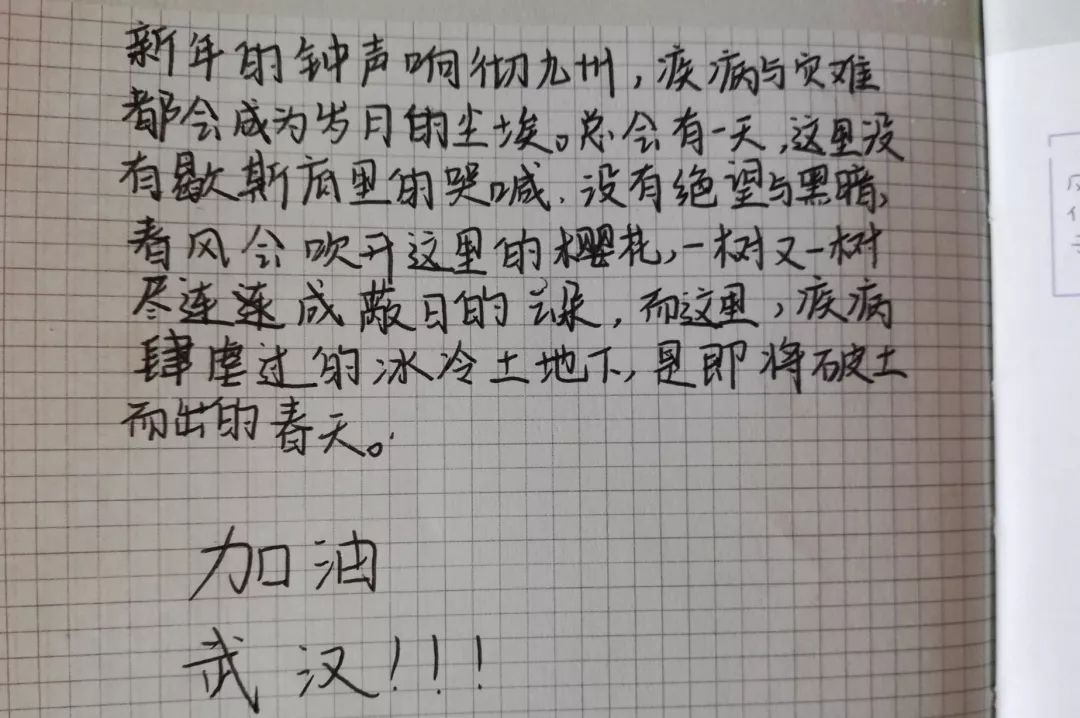 新年的钟声响彻九州，疾病与灾难
都会成为岁月的尘埃。总会有一天，这里没
有歇斯底里的哭喊，没有绝望与黑暗，
春风会吹开这里的樱花，一树又一树
尽连连成蔽日的云朵，而这里，疾病
肆虐过的冰冷土地下，是即将破土
而出的春天。
加油
武汉！！！